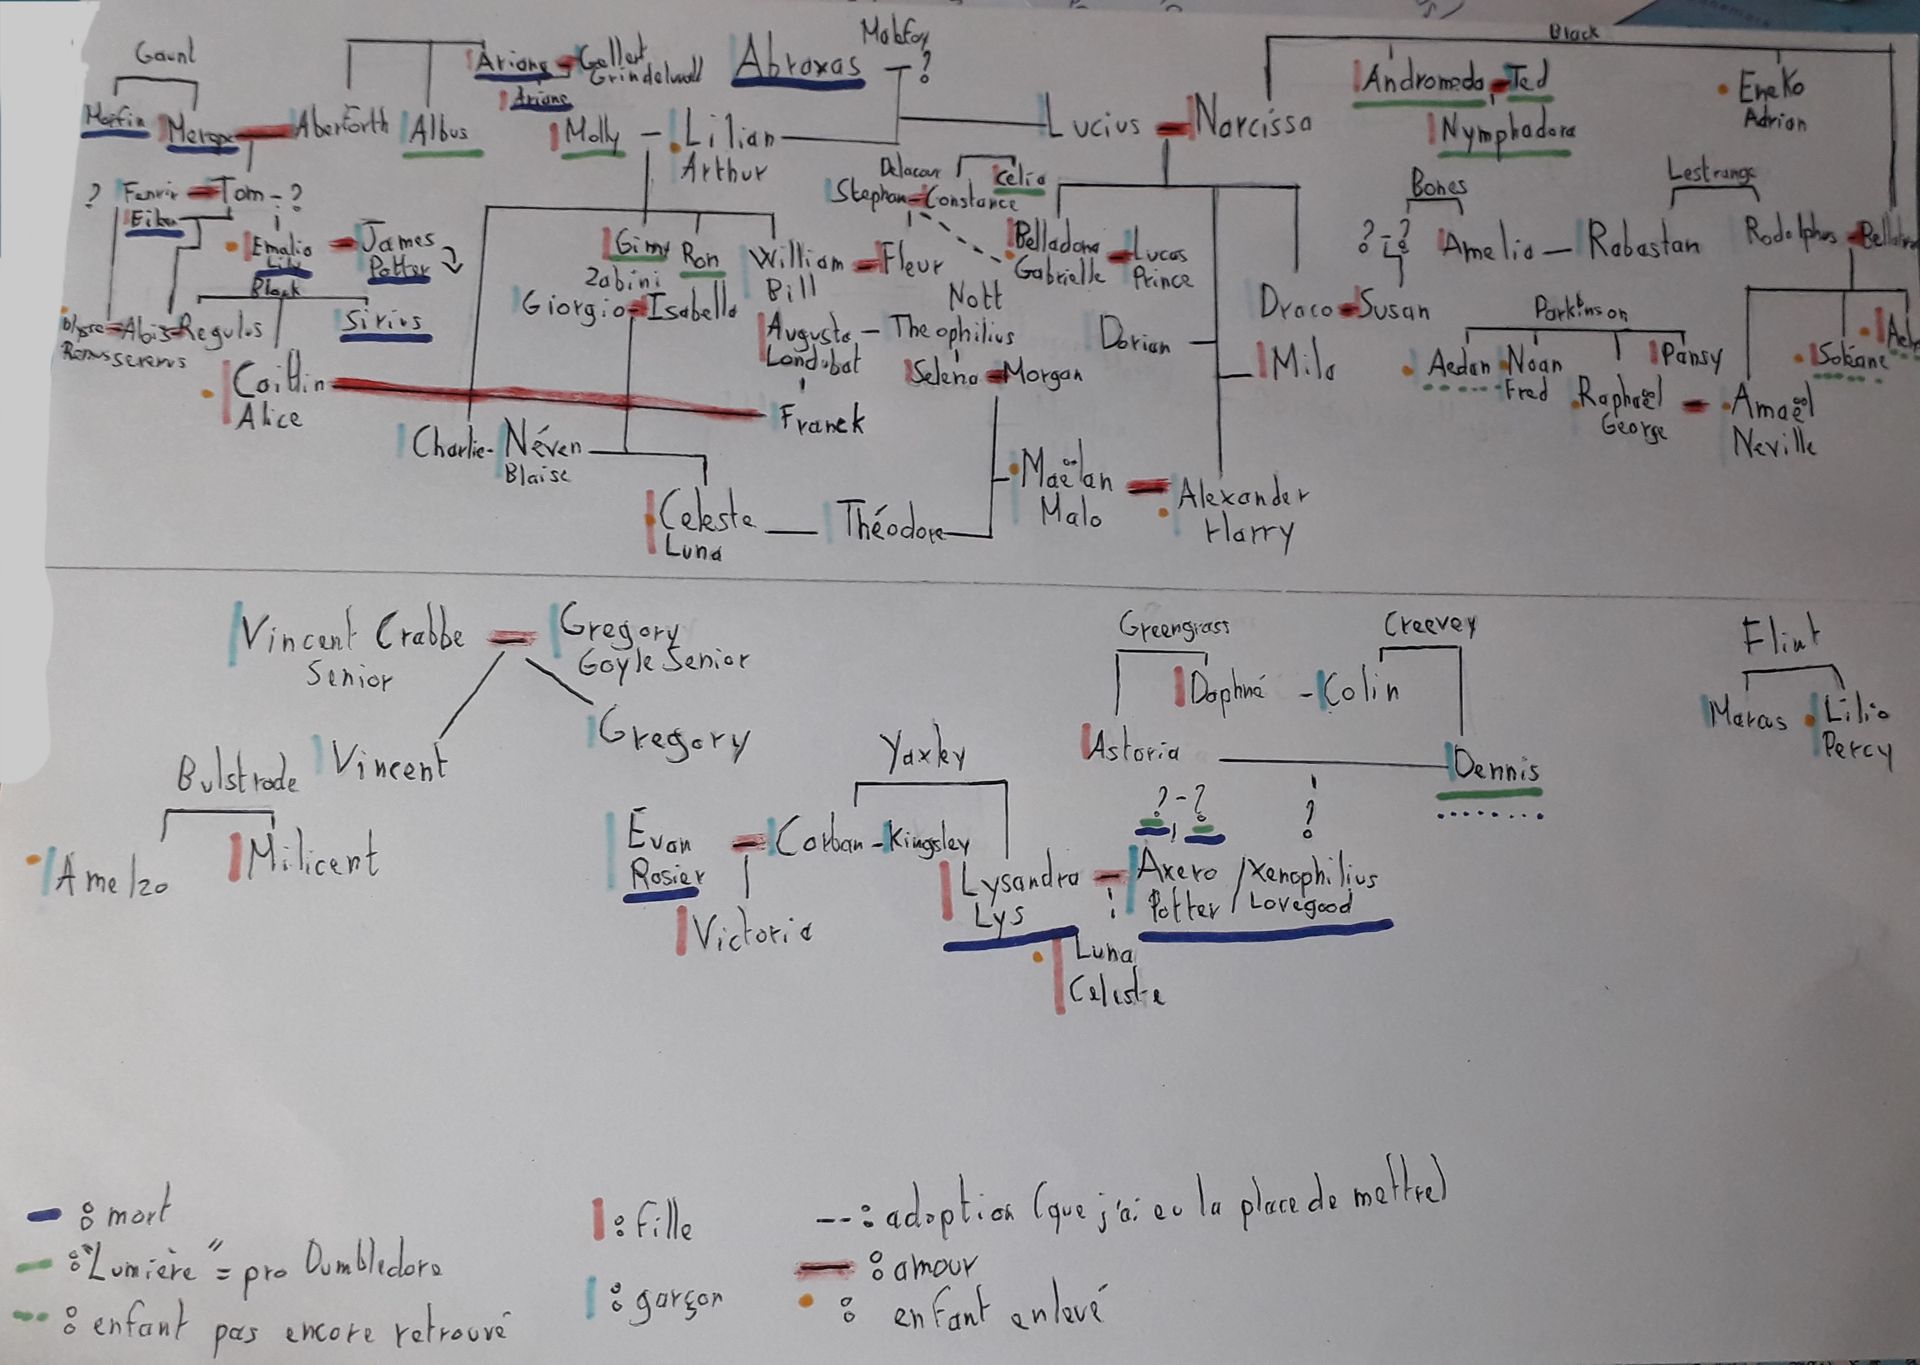 Gaunt
Morfin
Merope
Aberforth
Albus
Ariane - Gellert
Grindelwald
Ariane
Abraxas - ?
Molly - Lilian
Arthur
Lucius - Narcissa
Black
Andromeda - Ted
Nymphadora
Eneko
Adrian
? Fenrir - Tom - ?
Emalia - James
Potter
Black
Regulus
Sirius
Caitlin
Alice
Ginny
Ron
William - Fleur
Bill
Zabini
Giorgio - Isabella
Augusta - Theophilius
Londubat
Nott
Franck
Selena - Morgan
Delacour
Stephan - Constance
Celia
Belladona - Lucas
Gabrielle Prince
Dorian
Draco - Susan
Mila
Bones
? - ?
Amelia - Rabastan
Lestrange
Rodolphus
Parkinson
Aedan
Noan
Fred
Raphaël - Amaël
George Neville
Pansy
Soléane
Charlie - Néven
Blaise
Celeste - Théodore
Luna
Maëlan - Alexander
Malo Harry
Vincent Crabbe - Gregory
Senior Goyle Senior
Vincent
Gregory
Bulstrode
Milicent
Yaxley
Evan - Corban - Kingsley
Rosier
Victoria
Lysandra - Axero / Xenophilius
Lys Potter / Lovegood
Luna
Celeste
Greengrass
Creevey
Daphné - Colin
Astoria
Dennis
? - ?
?
Flint
Lilio
Percy
: mort
: "Lumière" = pro Dumbledore
: enfant pas encore retrouvé
: fille
: garçon
-- : adoption (que j'ai eu la place de mettre)
: amour
: enfant enlevé